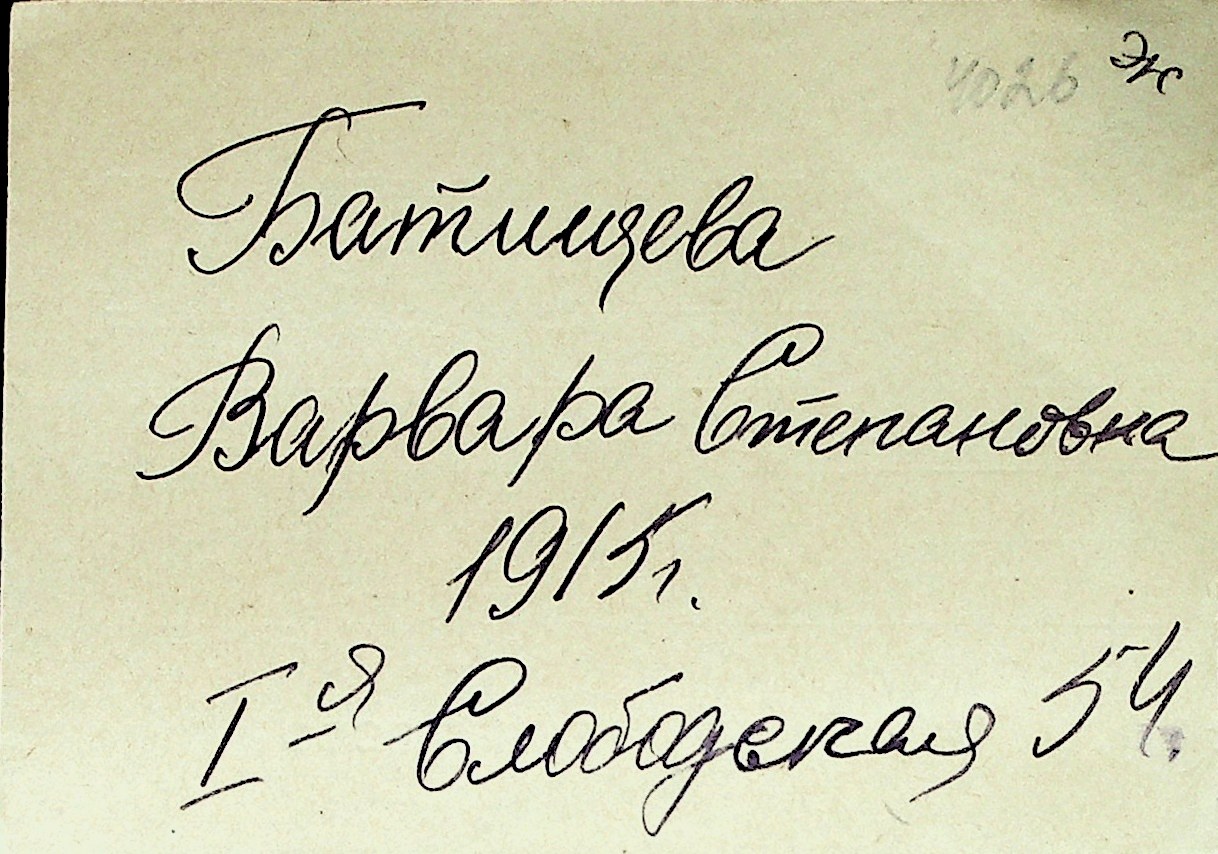 4026 Эк
Батищева
Варвара Степановна
1915г.
I-я Слободская 54.